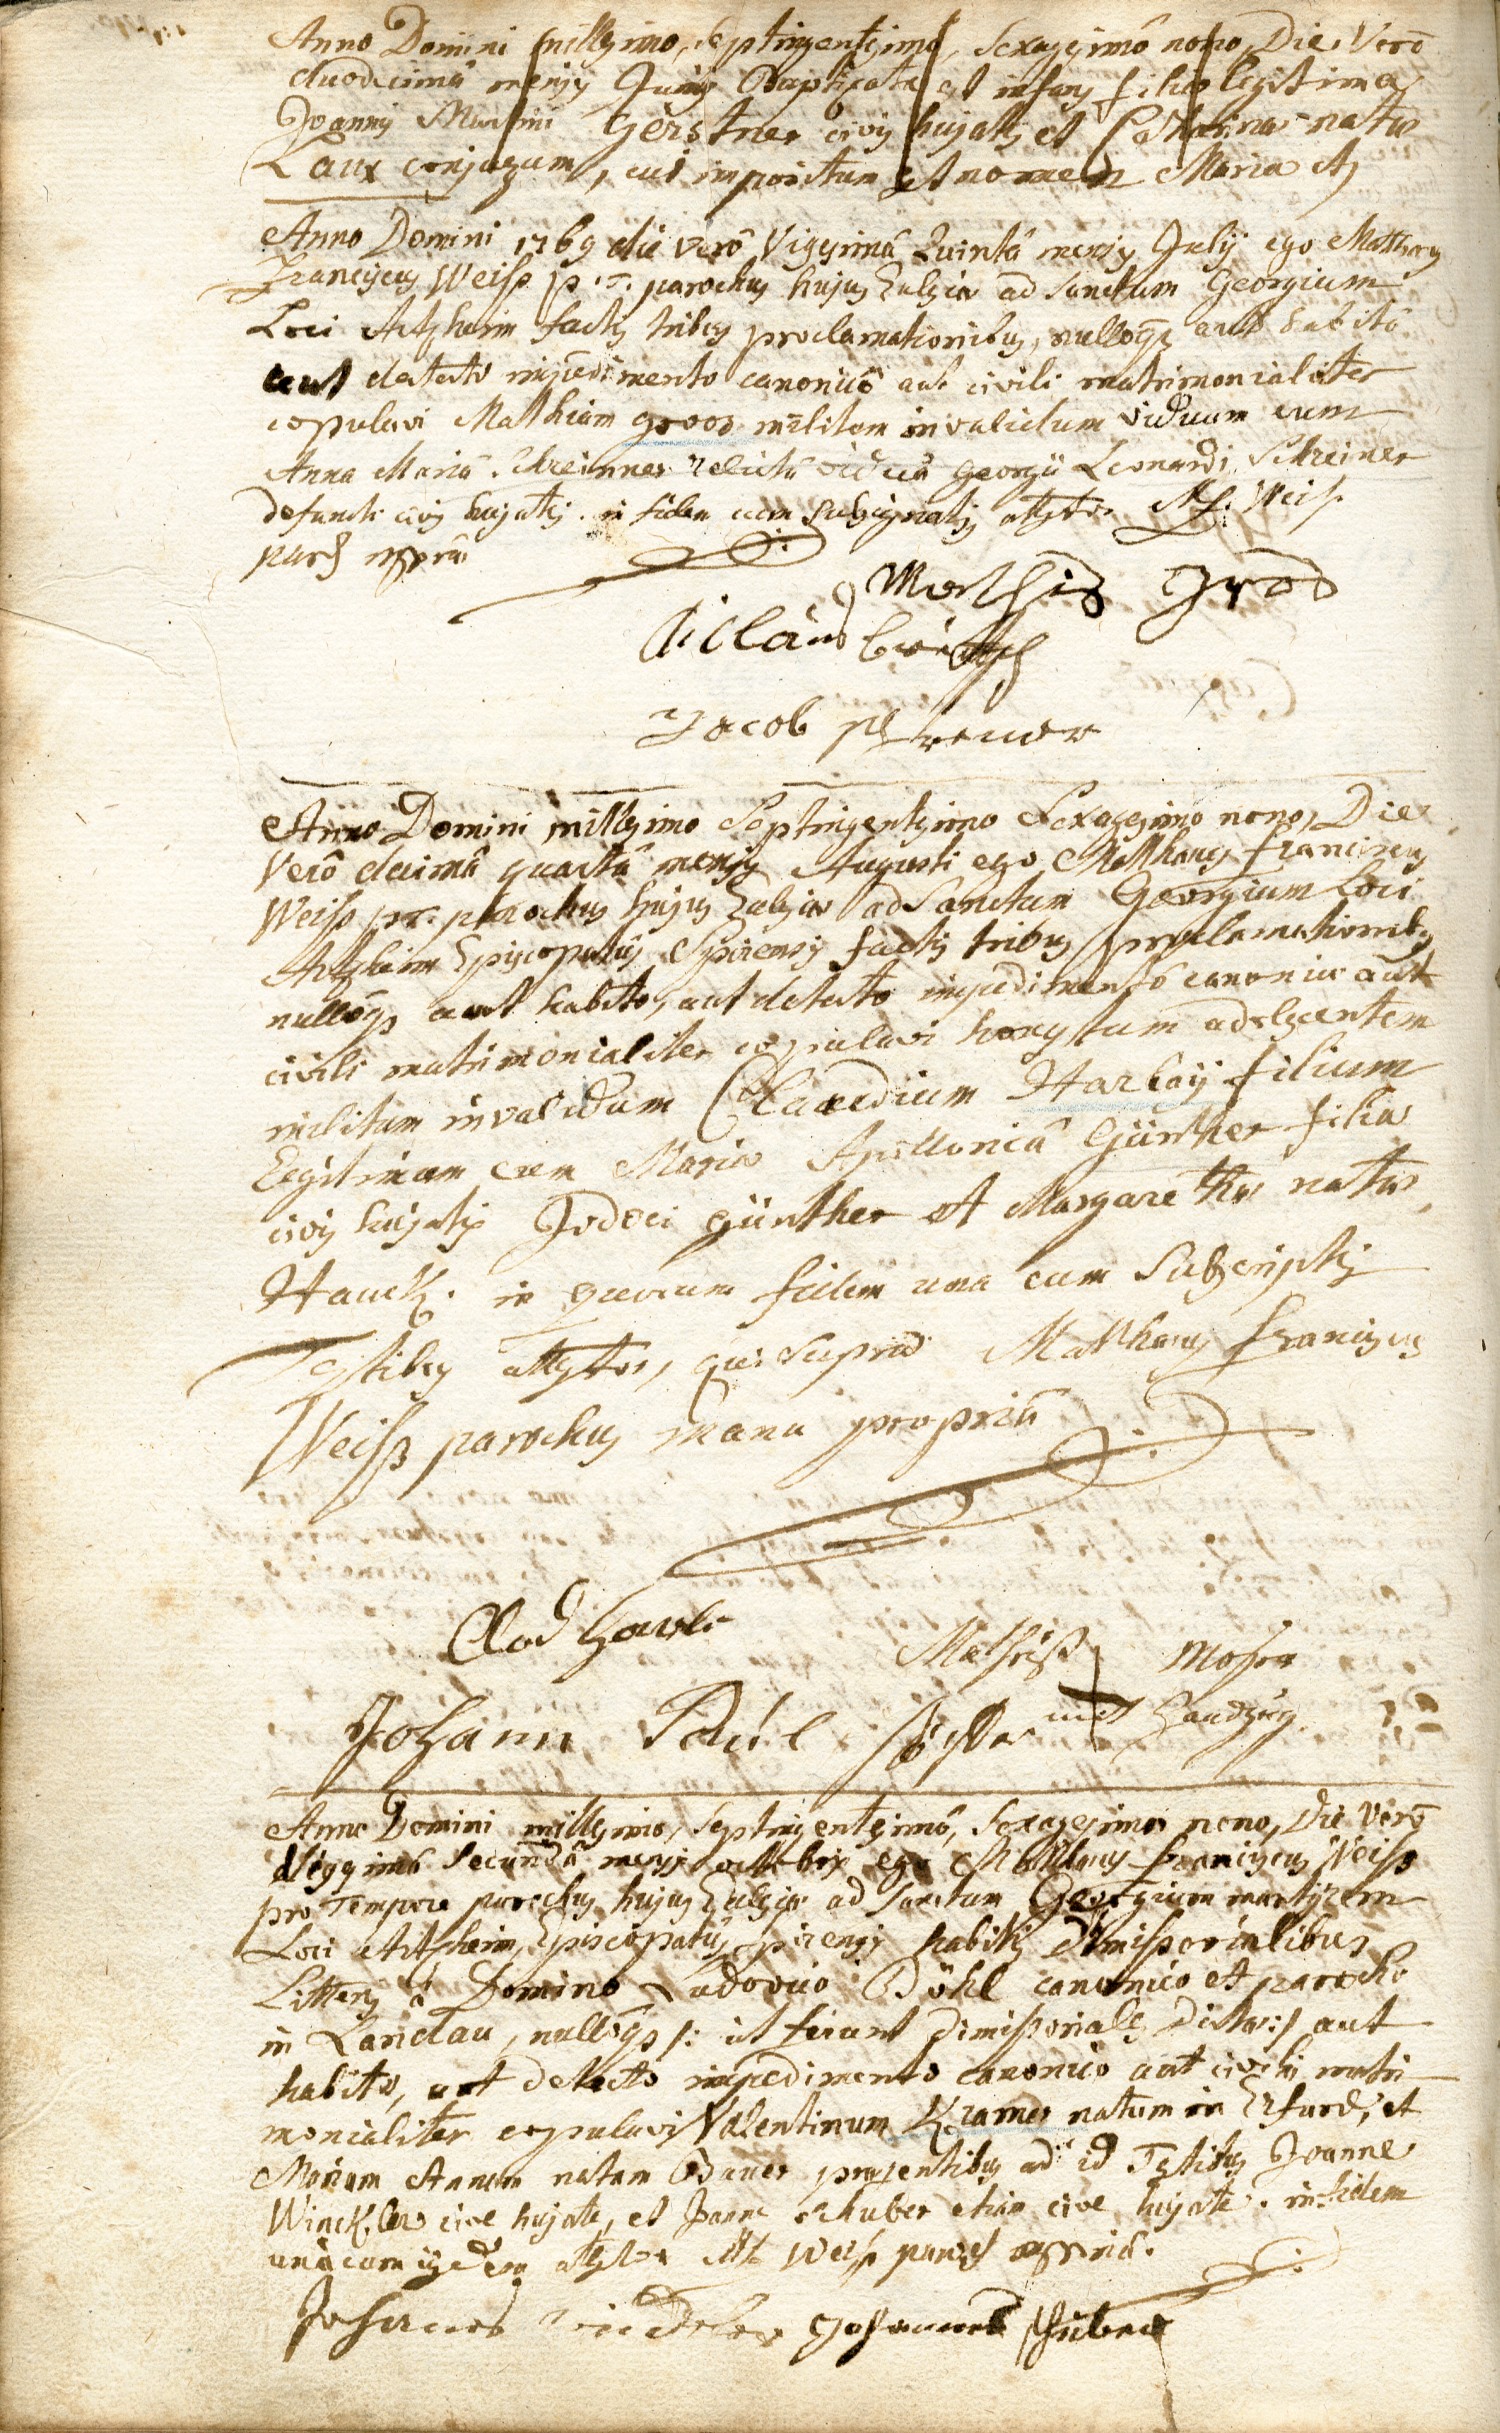 Anno Domini millesimo, septingentesimô, Sexagesimô nono, Die Verô
duodecimâ mensis Junÿ Baptizata est infans filia legitima
Joannis Martini Gerstner civis hujatis et Catharinæ natæ
Laux conjugum, cui impositum est nomen Maria A
Anno Domini 1769 die verô Vigesimâ Quintâ mensis Julÿ ego Mathæus
Franciscus Weiss p. T. parochus hujus Eclsiæ ad Sanctum Georgium
Loci Artzheim factis tribus proclamationibus, nullóq aut habitô
aut detecto impedimento canonicô aut civili matrimonialiter
copulavi Mathiam grood militem invalidum viduum cum
Anna Mariâ Schreinner relictâ viduâ Georgii Leonardi Schreiner
defuncti civis hujatis. in fidem cum subsignatis attestor M. F. Weiss
parch mppriâ
Mathis Grod
Jacob
Anno Domini millesimo Septingentesimo Sexagesimo nono, Die
Verô decimâ quartâ mensis Augusti ego Mathæus Franciscus
Weiss p.T. parochus hujus Eclsiæ ad Sanctum Georgium Loci
Artzheim Episcopatûs Spirensis factis tribus proclamationibus
nullóq aut habito, aut detecto impedimento canonico aut
civili matrimonialiter copulavi honestum adolscentem
militem invalidum Claudium Harlaÿ filium
Legitimum cum Maria Apolloniâ Günther filia
civis hujatis Jodoci günther et Margarethæ natæ
Hauck. in quorum fidem una cum Subscriptis
Testibus attestor, qui supra Mathæus Franciscus
Weiss parochus manu propriâ
Clod harli
Mathiß Moser
Johann Paul
mit Handzug
Anno Domini millesimo, Septingentesimô, Sexagesimo nono, Die Verô
Vigesimâ Secundâ mensis octobris ego Mathæus Franciscus Weiss
pro Tempore parochus hujus Eclsiæ ad Sanctum Georgium martyrem
Loci Artzheim, Episcopatûs Spirensis habitis dimissorialibus
Litteris â Domino Ludovico Döhl canonico et parocho
in Landau, nullóq /: ut ferunt Dimissoriales Dictæ :/ aut
habito, aut detecto impedimento canonico aut civili matri
monialiter copulavi Valentinum Kramer natum in Erfurd, et
Mariam Annam natam Bauer præsentibus ad id Testibus Joanne
Winckler cive hujate, et Joanne schuber etiam cive hujate. in fidem
unâ cum iisdem attestor M F Weiss parch mppriâ.
Johannes Johannes schuber